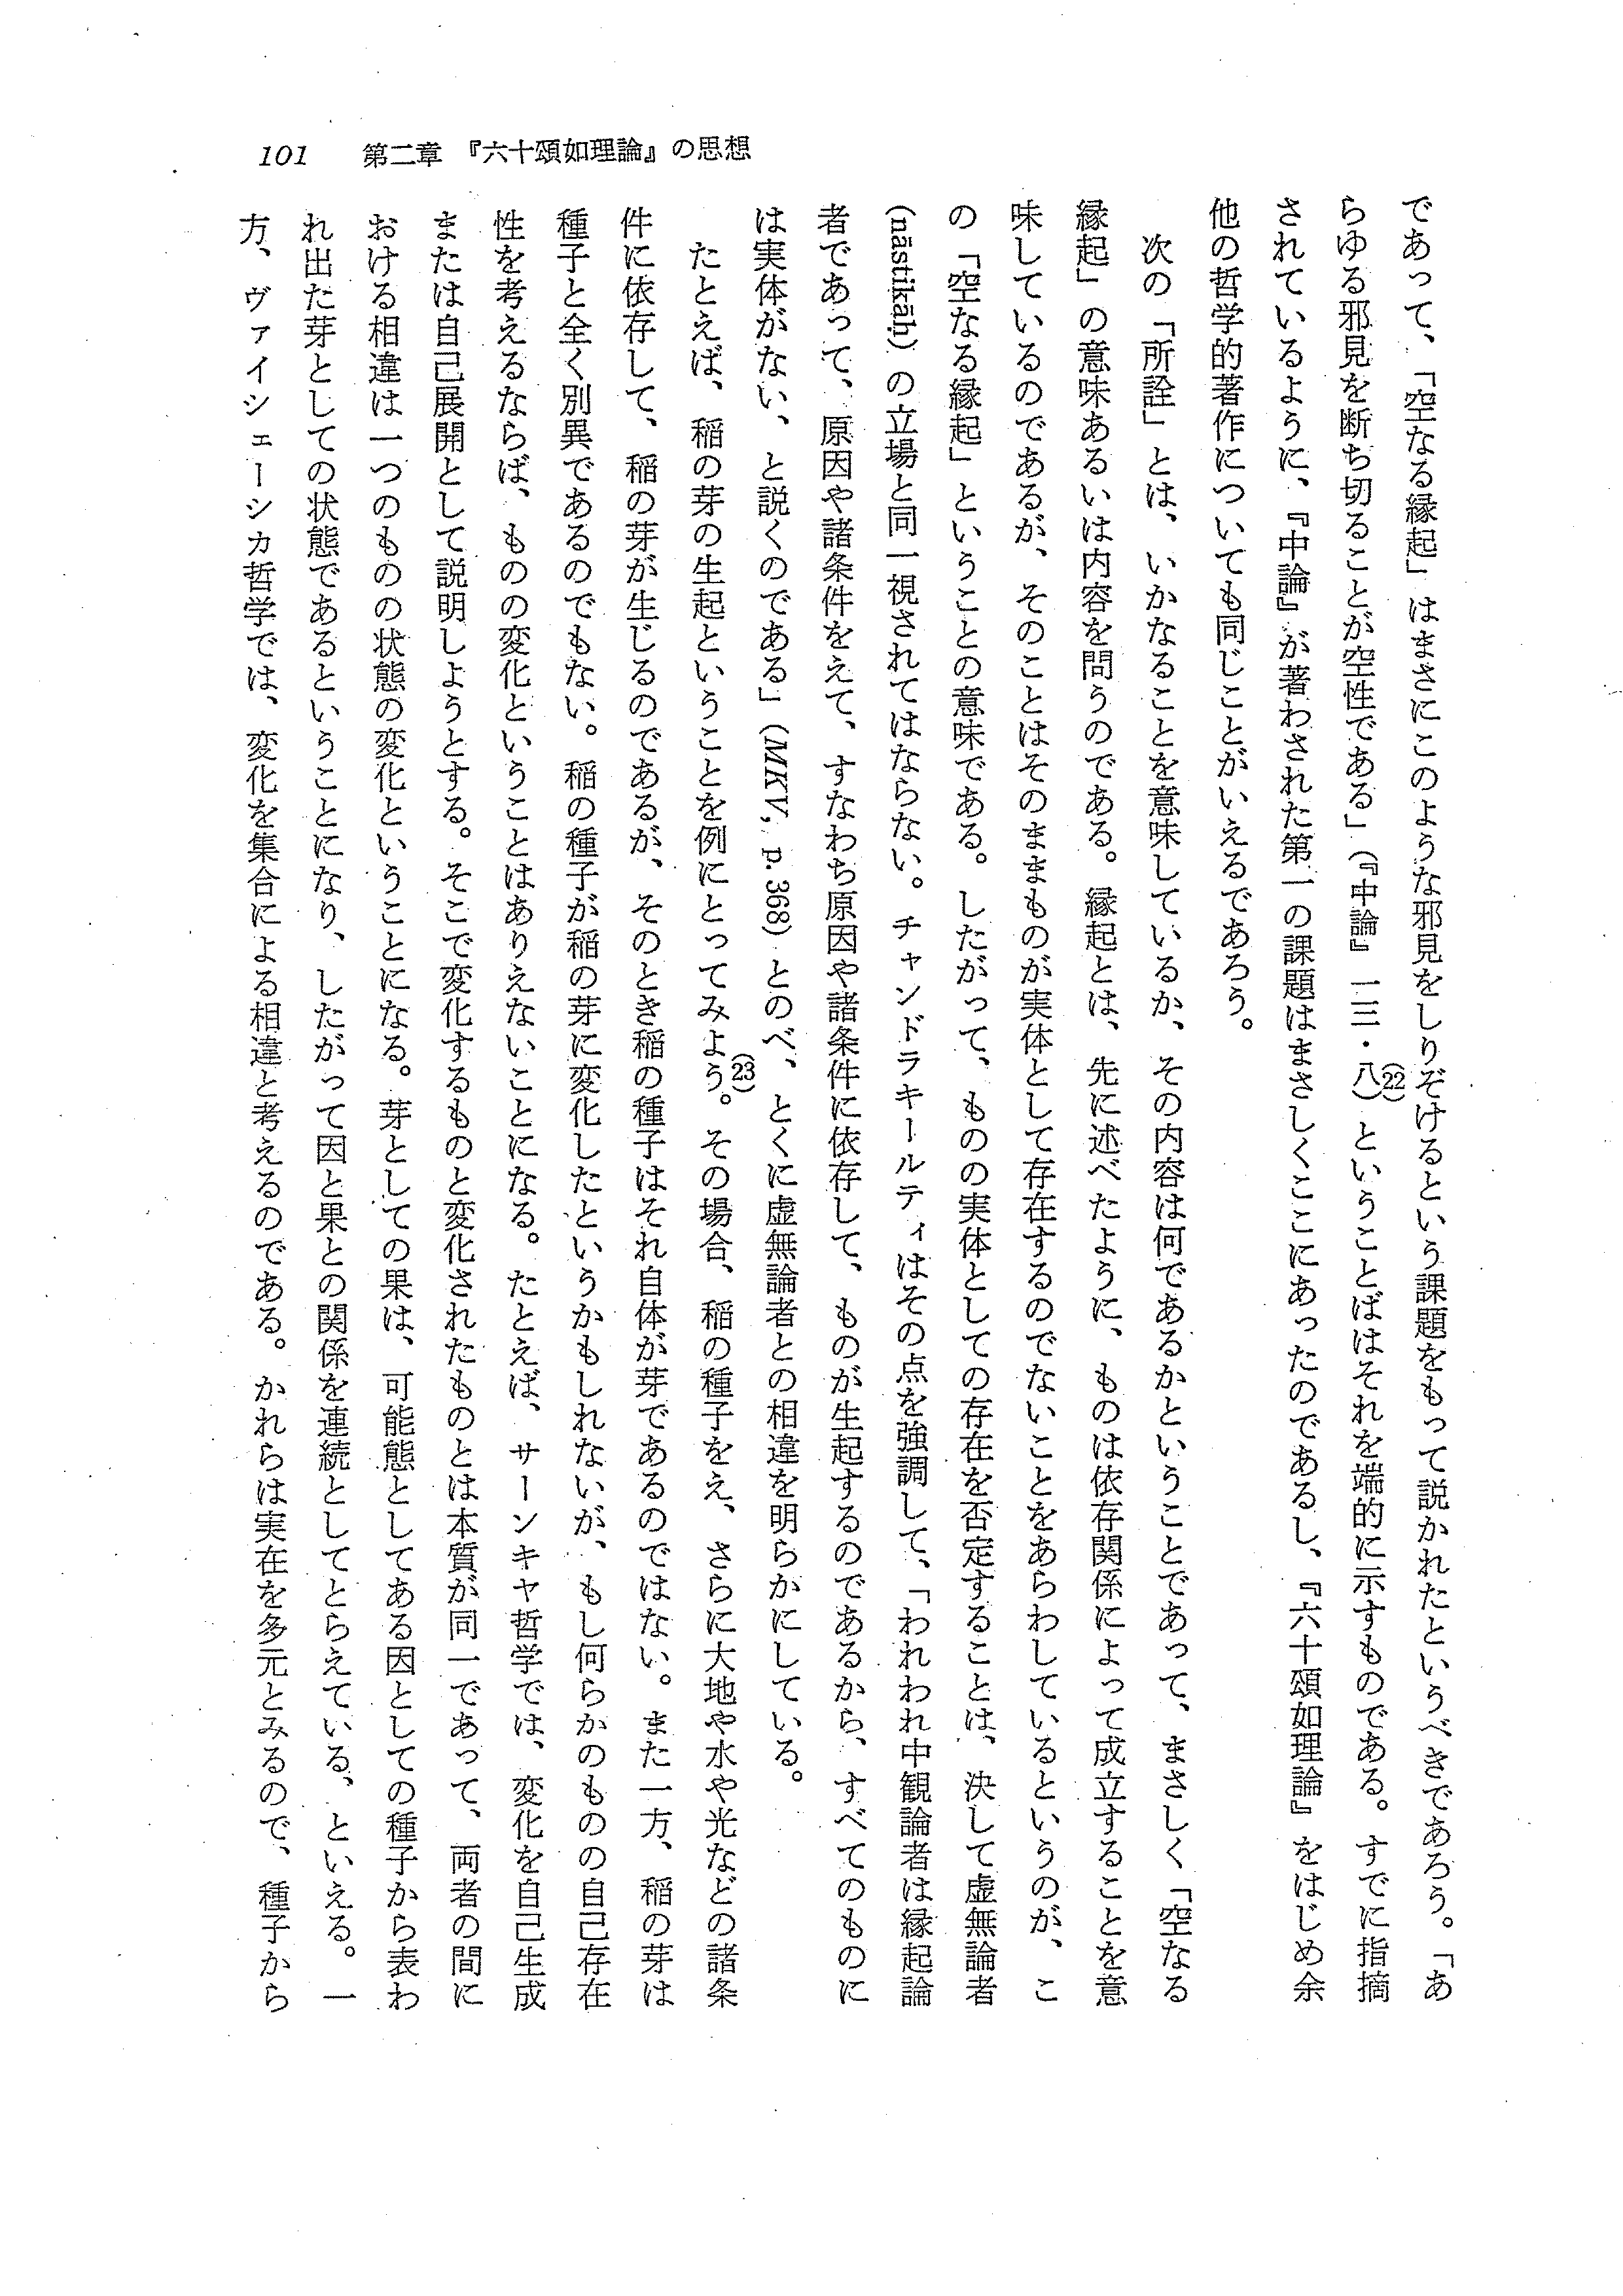 101　第二章　『六十頌如理論』の思想
であって、「空なる縁起」はまさにこのような邪見をしりぞけるという課題をもって説かれたというべきであろう。「あ
らゆる邪見を断ち切ることが空性である」(『中論』一三・八)(22)ということばはそれを端的に示すものである。すでに指摘
されているように、『中論』が著わされた第一の課題はまさしくここにあったのであるし、『六十頌如理論』をはじめ余
他の哲学的著作についても同じことがいえるであろう。
　次の「所詮」とは、いかなることを意味しているか、その内容は何であるかということであって、まさしく「空なる
縁起」の意味あるいは内容を問うのである。縁起とは、先に述べたように、ものは依存関係によって成立することを意
味しているのであるが、そのことはそのままものが実体として存在するのでないことをあらわしているというのが、こ
の「空なる縁起」ということの意味である。したがって、ものの実体としての存在を否定することは、決して虚無論者
(nāstikāḥ)の立場と同一視されてはならない。チャンドラキールティはその点を強調して、「われわれ中観論者は縁起論
者であって、原因や諸条件をえて、すなわち原因や諸条件に依存して、ものが生起するのであるから、すべてのものに
は実体がない、と説くのである」(MKV, p. 368)とのべ、とくに虚無論者との相違を明らかにしている。
　たとえば、稲の芽の生起ということを例にとってみよう(23)。その場合、稲の種子をえ、さらに大地や水や光などの諸条
件に依存して、稲の芽が生じるのであるが、そのとき稲の種子はそれ自体が芽であるのではない。また一方、稲の芽は
種子と全く別異であるのでもない。稲の種子が稲の芽に変化したというかもしれないが、もし何らかのものの自己存在
性を考えるならば、ものの変化ということはありえないことになる。たとえば、サーンキャ哲学では、変化を自己生成
または自己展開として説明しようとする。そこで変化するものと変化されたものとは本質が同一であって、両者の間に
おける相違は一つのものの状態の変化ということになる。芽としての果は、可能態としてある因としての種子から表わ
れ出た芽としての状態であるということになり、したがって因と果との関係を連続としてとらえている、といえる。一
方、ヴァイシェーシカ哲学では、変化を集合による相違と考えるのである。かれらは実在を多元とみるので、種子から